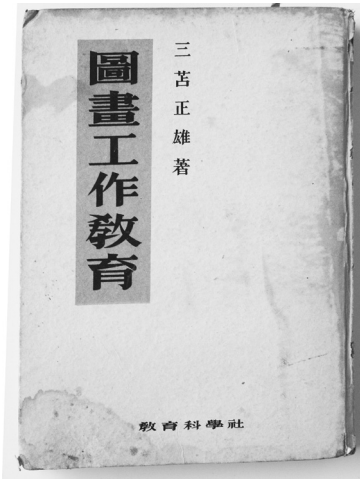 三苫正雄著
圖畫工作敎育
敎育科學社